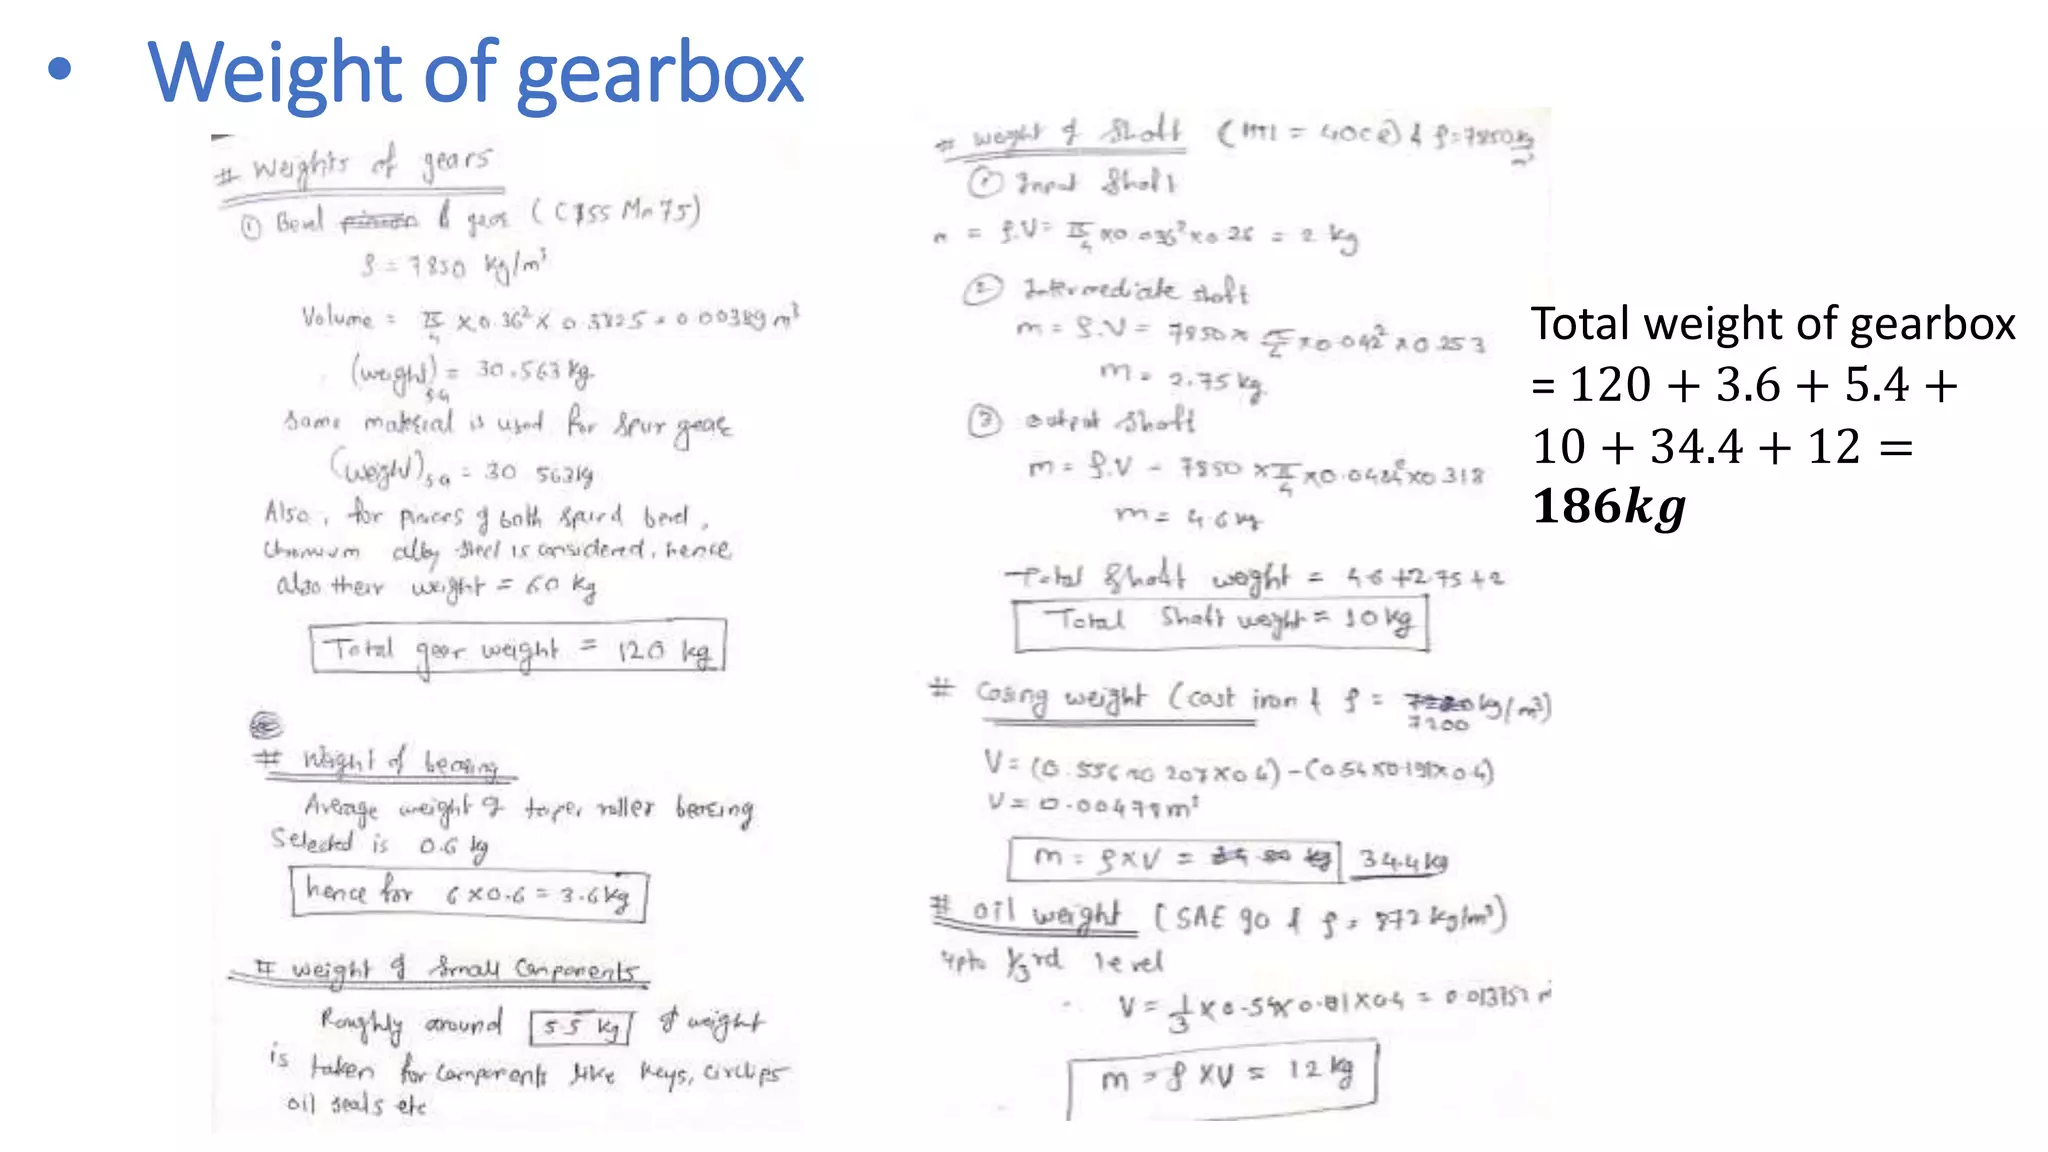 • Weight of gearbox
# Weights of gears
① Bevel & gear (C 55 Mn 75)
ρ = 7850 kg/m³
Volume = π/4 × 0.36² × 0.3825 = 0.00389 m³
(weight) = 30.563 kg
same material is used for spur gear
(weight)sg = 30.563 kg
Also, for pinions of both spur & bevel,
chromium alloy steel is considered, hence
also their weight = 60 kg
Total gear weight = 120 kg
# Weight of bearing
Average weight of taper roller bearing
Selected is 0.6 kg
hence for 6 × 0.6 = 3.6 kg
# weight of small Components
Roughly around 5.5 kg of weight
is taken for components like keys, circlips
oil seals etc
# weight of shaft (mtl = 40C8) & ρ = 7850 kg/m³
① Input shaft
m = ρ.V = π/4 × 0.036² × 0.26 = 2 kg
② Intermediate shaft
m = ρ.V = 7850 × π/4 × 0.042² × 0.253
m = 2.75 kg
③ output shaft
m = ρ.V = 7850 × π/4 × 0.048² × 0.318
m = 4.6 kg
Total shaft weight = 4.6 + 2.75 + 2
Total shaft weight = 10 kg
# Casing weight (cast iron & ρ = 7200 kg/m³)
V = (0.556 × 0.207 × 0.4) - (0.54 × 0.191 × 0.4)
V = 0.00478 m³
m = ρ × V = 34.4 kg
# oil weight (SAE 90 & ρ = 872 kg/m³)
upto 1/3rd level
V = 1/3 × 0.54 × 0. × 0.4 = 0.013752 m
m = ρ × V = 12 kg
Total weight of gearbox
= 120 + 3.6 + 5.4 +
10 + 34.4 + 12 =
186kg